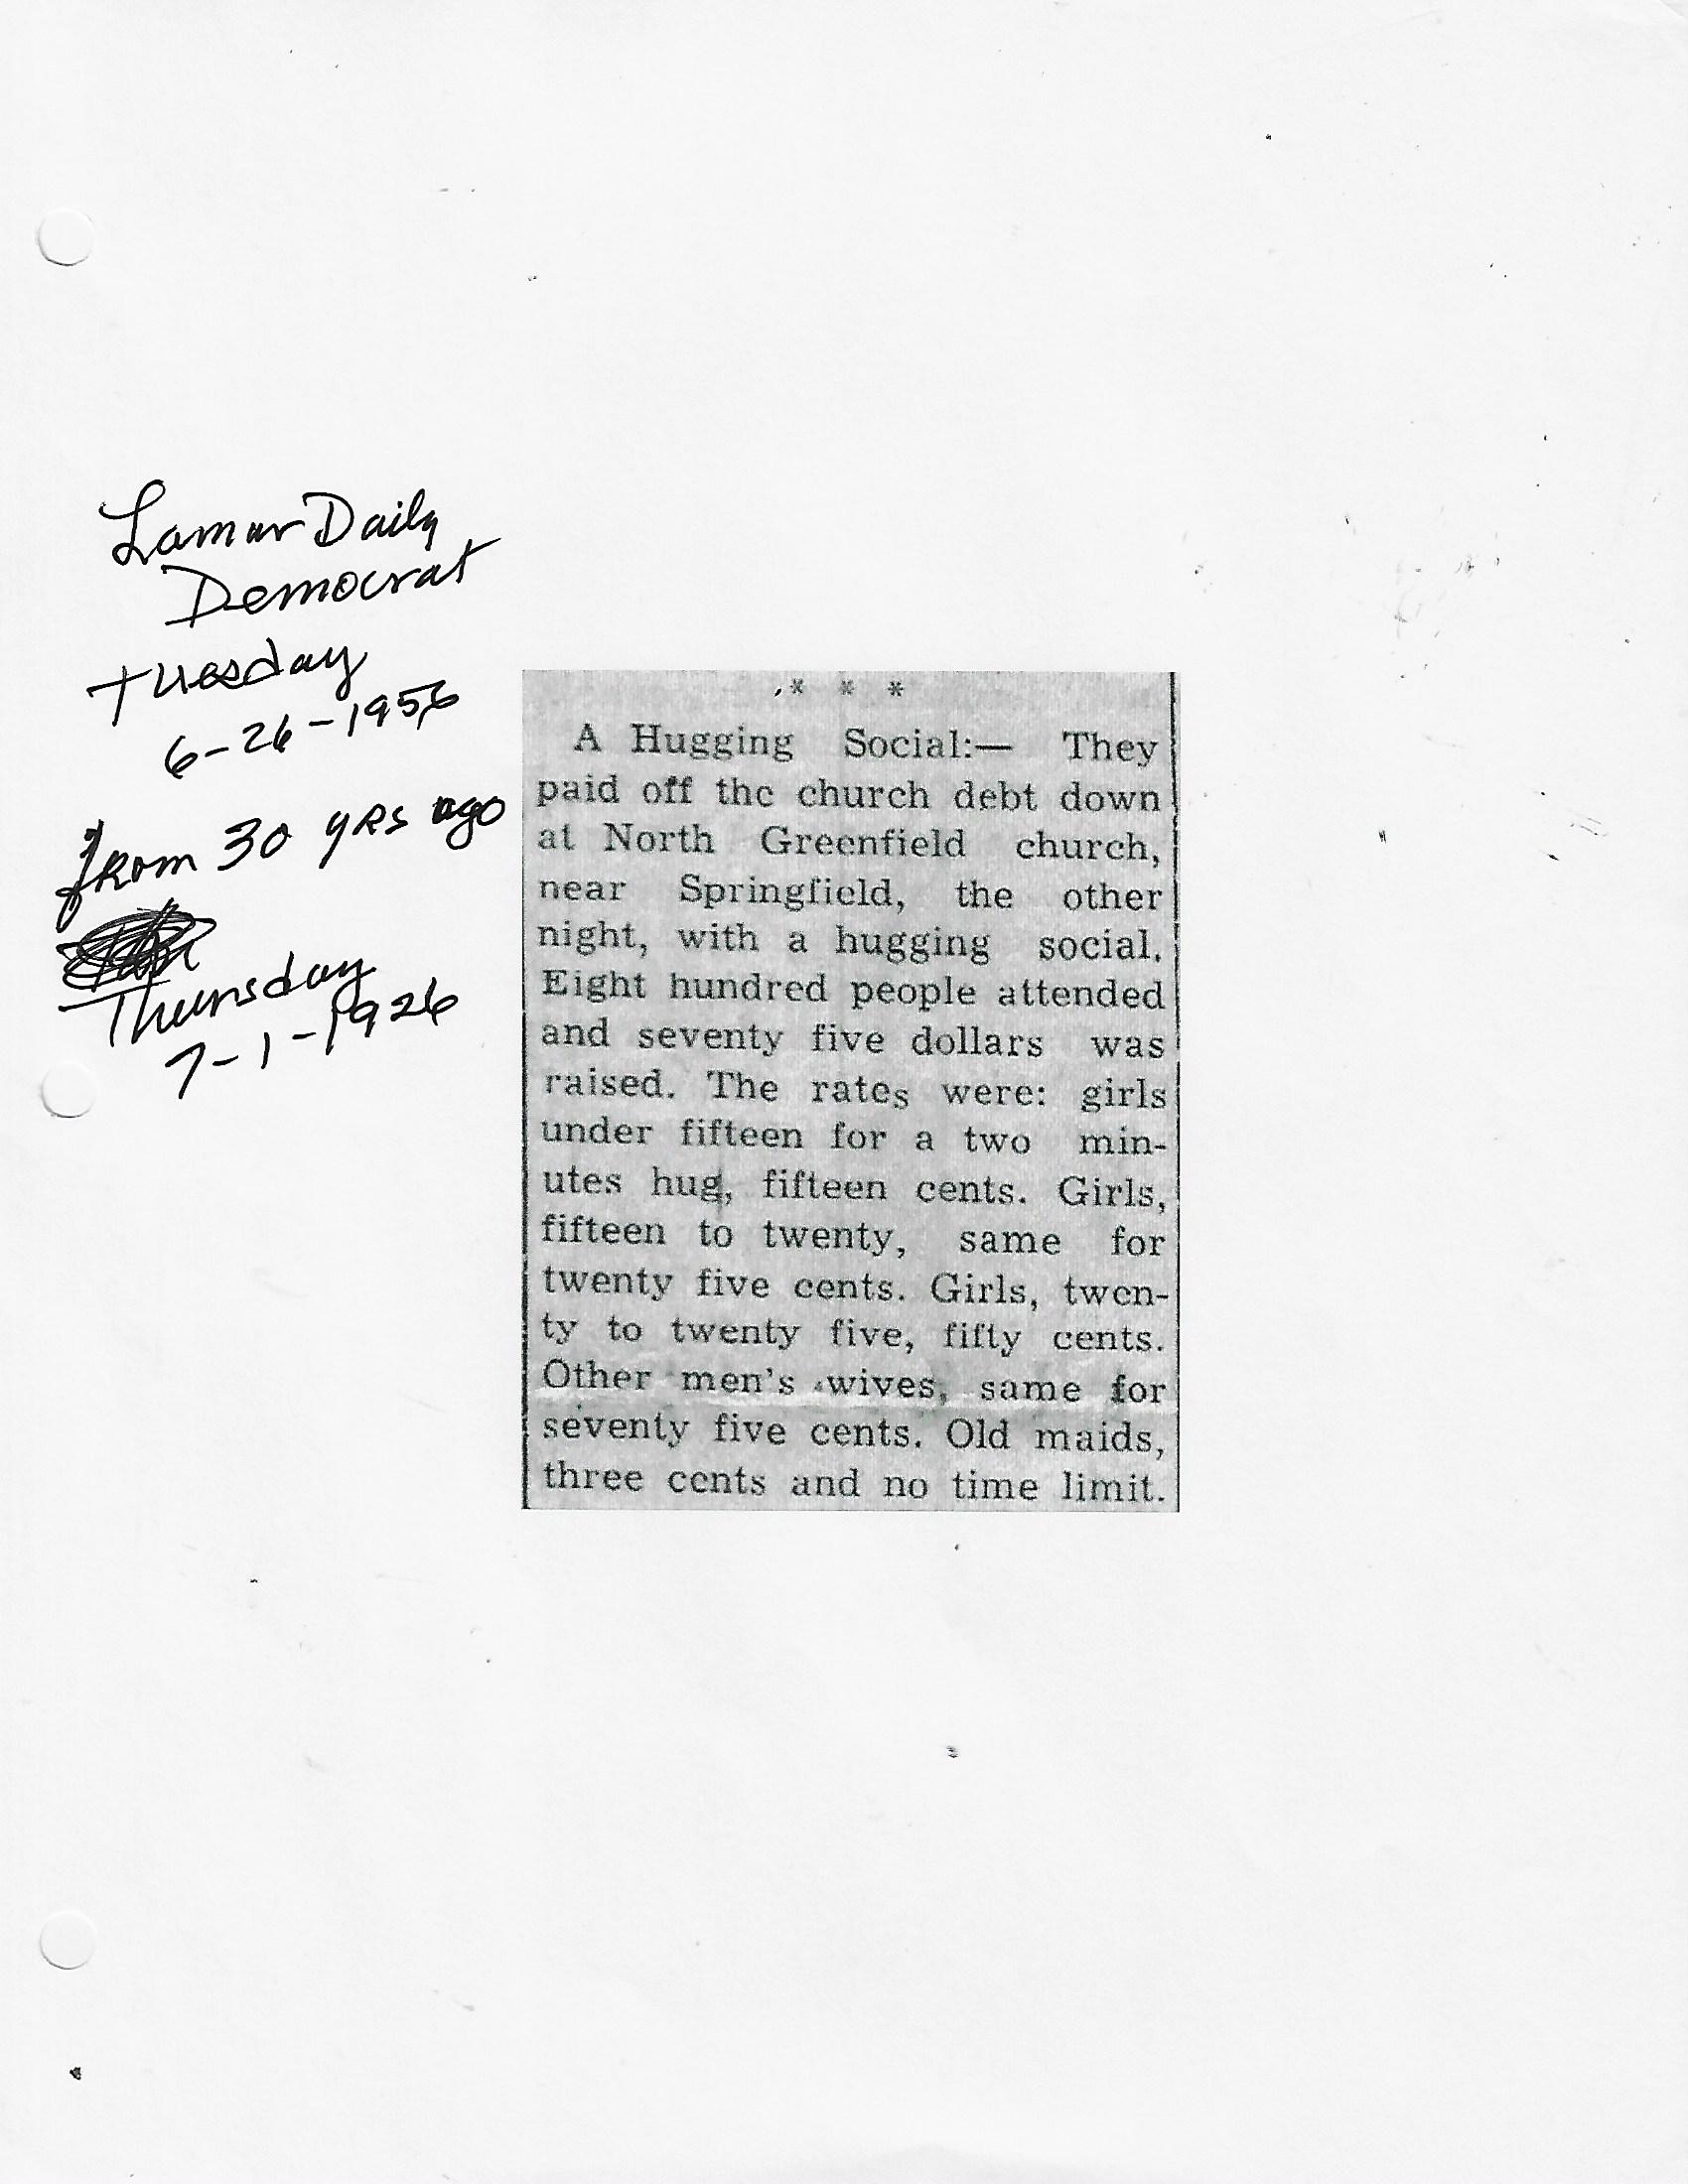 Lamar Daily
Democrat
Tuesday
6-26-1956
from 30 yrs ago
Thursday
7-1-1926
* * *
A Hugging Social:— They
paid off the church debt down
at North Greenfield church,
near Springfield, the other
night, with a hugging social.
Eight hundred people attended
and seventy five dollars was
raised. The rates were: girls
under fifteen for a two min-
utes hug, fifteen cents. Girls,
fifteen to twenty, same for
twenty five cents. Girls, twen-
ty to twenty five, fifty cents.
Other men's wives, same for
seventy five cents. Old maids,
three cents and no time limit.